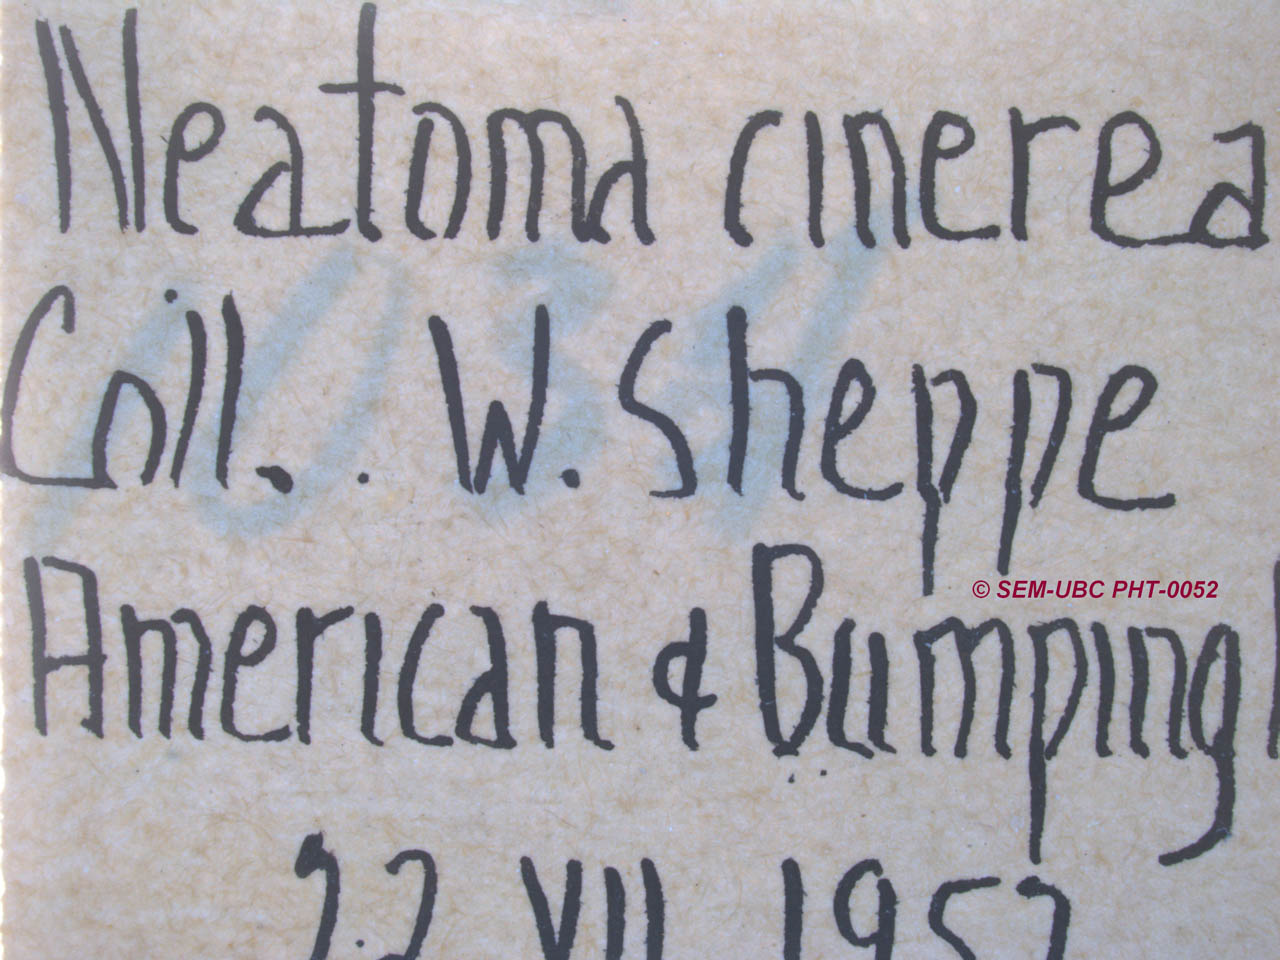 Neatoma cinerea
Coll.. W. Sheppe
© SEM-UBC PHT-0052
American & Bumping
22 VII 1952